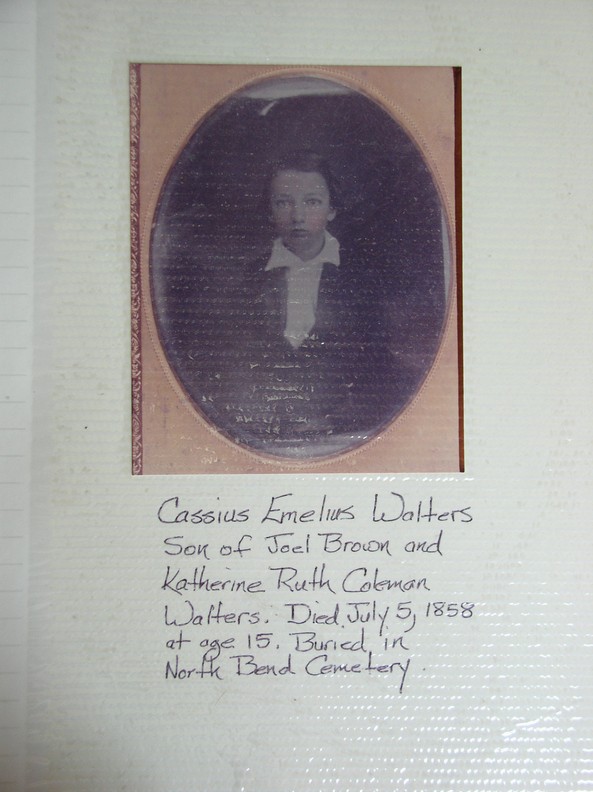 Cassius Emelius Walters
Son of Joel Brown and
Katherine Ruth Coleman
Walters. Died July 5, 1858
at age 15. Buried in
North Bend Cemetery.